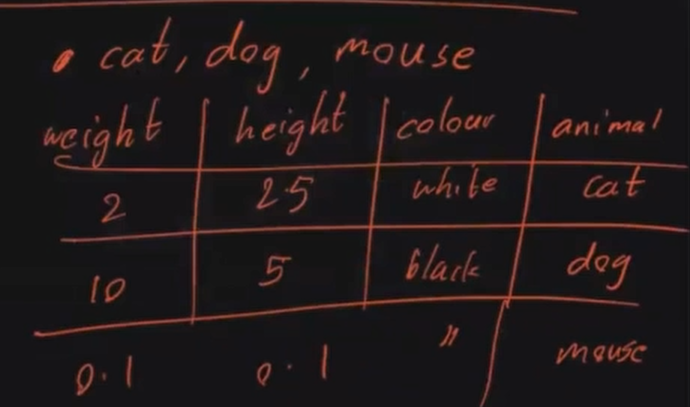 • cat, dog, mouse
weight height colour animal
2 2.5 white cat
10 5 black dog
0.1 0.1 " mouse